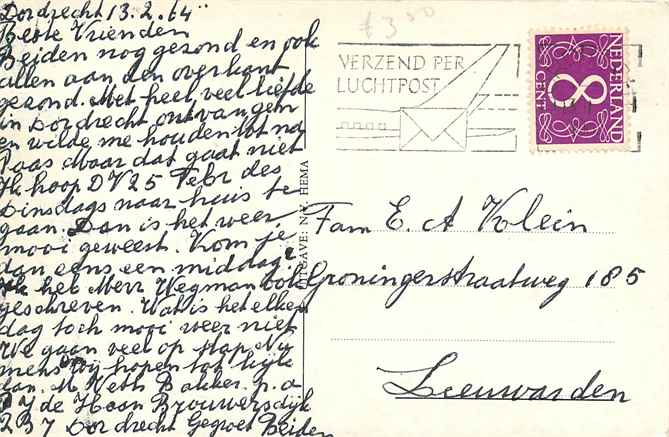 Dordrecht 13.2.64"
Beste Vrienden
Beiden nog gezond en ook
allen aan den overkant
gezond. Met heel veel liefde
in Dordrecht ontvangen
en wilde me houden tot na
Paas Maar dat gaat niet
Ik hoop DV 25 Febr des
Dinsdags naar huis te
gaan. Dan is het weer
mooi geweest. Kom je
dan eens een middag.
het Mevr Hegman ook
geschreven. Wat is het elken
dag toch mooi weer niet
We gaan veel op stap. Nu
mens hopen tot kijk
dan. M Bakker. p. a
de Haan Brouwersdijk
237 Dordrecht Gegroet Beiden
£3 50
VERZEND PER
LUCHTPOST
NEDERLAND
8
CENT
UITGAVE: N.V. HEMA
Fam E. A Klein
Groningerstraatweg 185
Leeuwarden